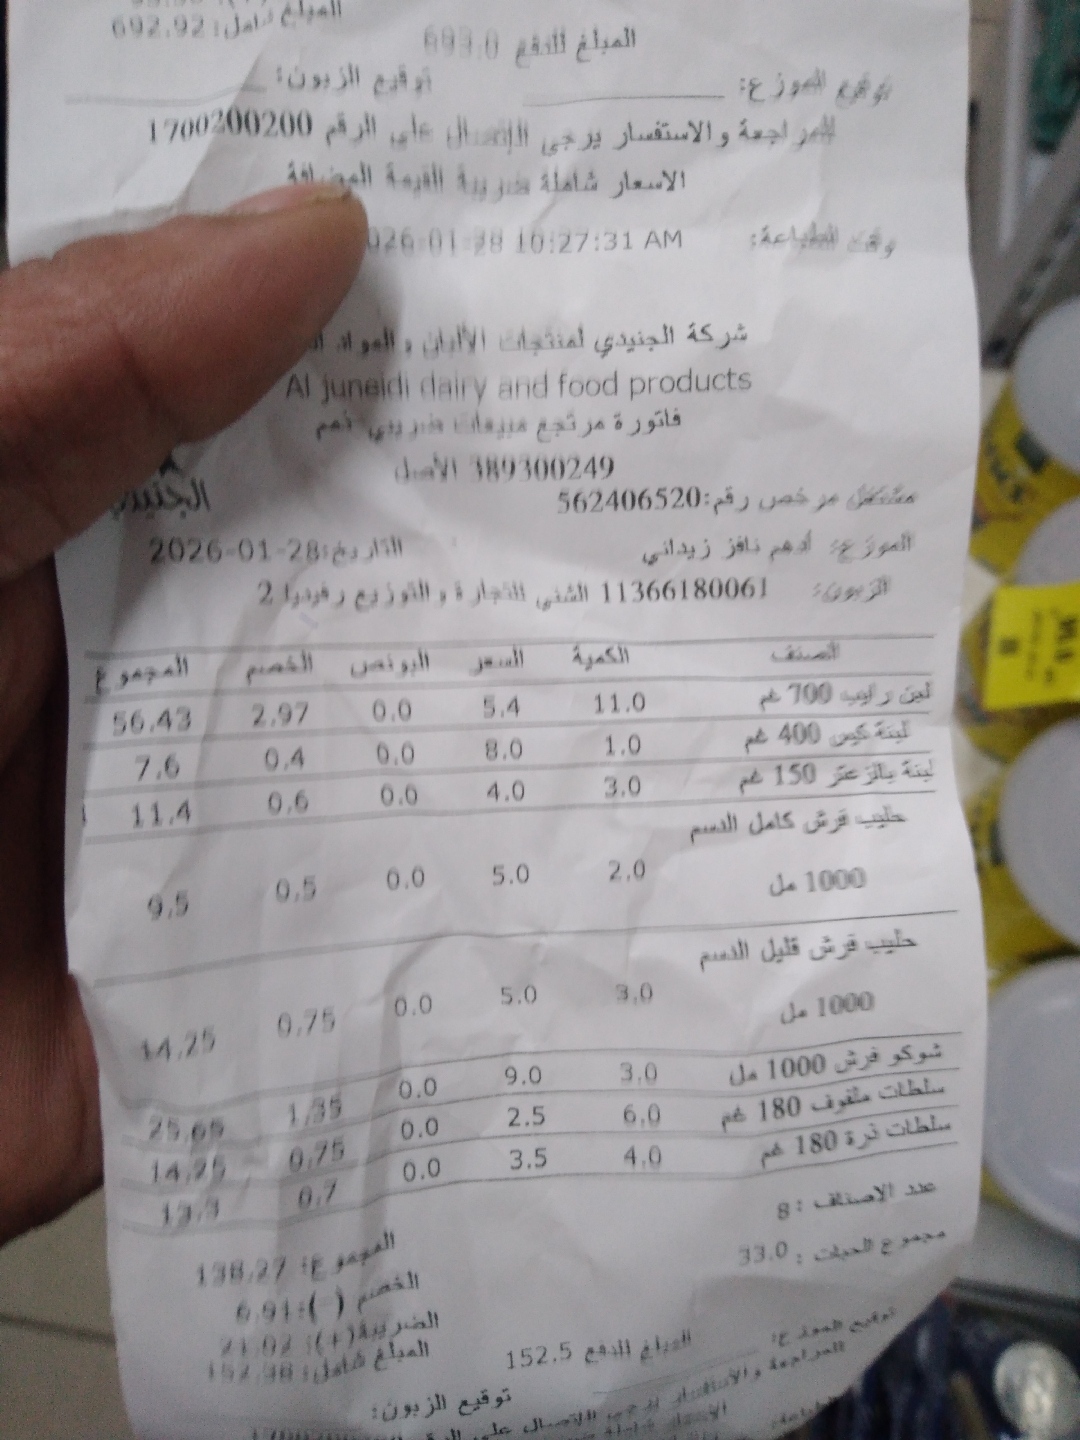 المبلغ شامل: 692.92
المبلغ للدفع 693.0
توقيع الموزع: توقيع الزبون:
للمراجعة والاستفسار يرجى الاتصال على الرقم 1700200200
الاسعار شاملة ضريبة القيمة المضافة
وقت الطباعة: 026-01-28 10:27:31 AM
شركة الجنيدي لمنتجات الألبان والمواد
Al juneidi dairy and food products
فاتورة مرتجع مبيعات ضريبي ذمم
389300249 الأصل
الجنيدي
مشتغل مرخص رقم:562406520
الموزع: أدهم نافز زيداني التاريخ:2026-01-28
الزبون: 11366180061 الشني للتجارة والتوزيع رفيديا 2
الصنف الكمية السعر البونص الخصم المجموع
لبن رايب 700 غم 11.0 5.4 0.0 2.97 56.43
لبنة كيس 400 غم 1.0 8.0 0.0 0.4 7.6
لبنة بالزعتر 150 غم 3.0 4.0 0.0 0.6 11.4
حليب فرش كامل الدسم
1000 مل 2.0 5.0 0.0 0.5 9.5
حليب فرش قليل الدسم
1000 مل 3.0 5.0 0.0 0.75 14.25
شوكو فرش 1000 مل 3.0 9.0 0.0 1.35 25.65
سلطات ملفوف 180 غم 6.0 2.5 0.0 0.75 14.25
سلطات ذرة 180 غم 4.0 3.5 0.0 0.7 13.3
عدد الاصناف : 8
مجموع الحبات : 33.0
المجموع: 138.27
الخصم (-): 6.91
الضريبة(+): 21.02
المبلغ شامل: 152.38
المبلغ للدفع 152.5
توقيع الموزع:
توقيع الزبون:
للمراجعة والاستفسار يرجى الاتصال على الرقم
الاسعار شاملة